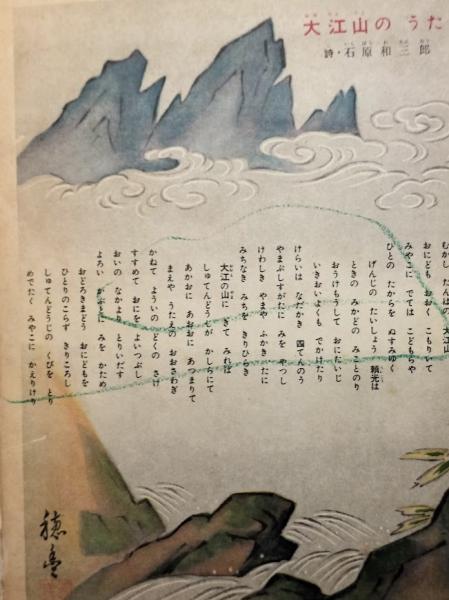 大江山の うた
詩・石原和三郎
むかし たんばの 大江
おにども おおく こもりいて
みやこに でては こどもらや
ひとの たからを ぬすみゆく
げんじの たいしょう 頼光は
ときの みかどの みことのり
おうけもうして おにたいじ
いきおいよくも でかけたり
けらいは なだかき 四てんのう
やまぶしすがたに みを やつし
けわしき やまや ふかきたに
みちなき みちを きりひらき
大江の山に きて みれば
しゅてんどうじが かしらにて
あかおに あおおに あつまりて
まえや うたえの おおさわぎ
かねて よういの どくの さけ
すすめて おにを よいつぶし
おいの なかより とりいだす
よろい かぶとに みを かため
おどろきまどう おにどもを
ひとりのこらず きりころし
しゅてんどうじの くびを とり
めでたく みやこに かえりけり